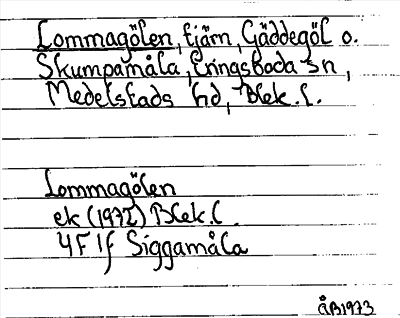 Lommagölen, tjärn, Gäddegöl o.
Skumpamåla, Eringsboda sn,
Medelstads hd, Blek.l.
Lommagölen
ek (1972) Blek.l.
4F 1f Siggamåla
ÅB1973